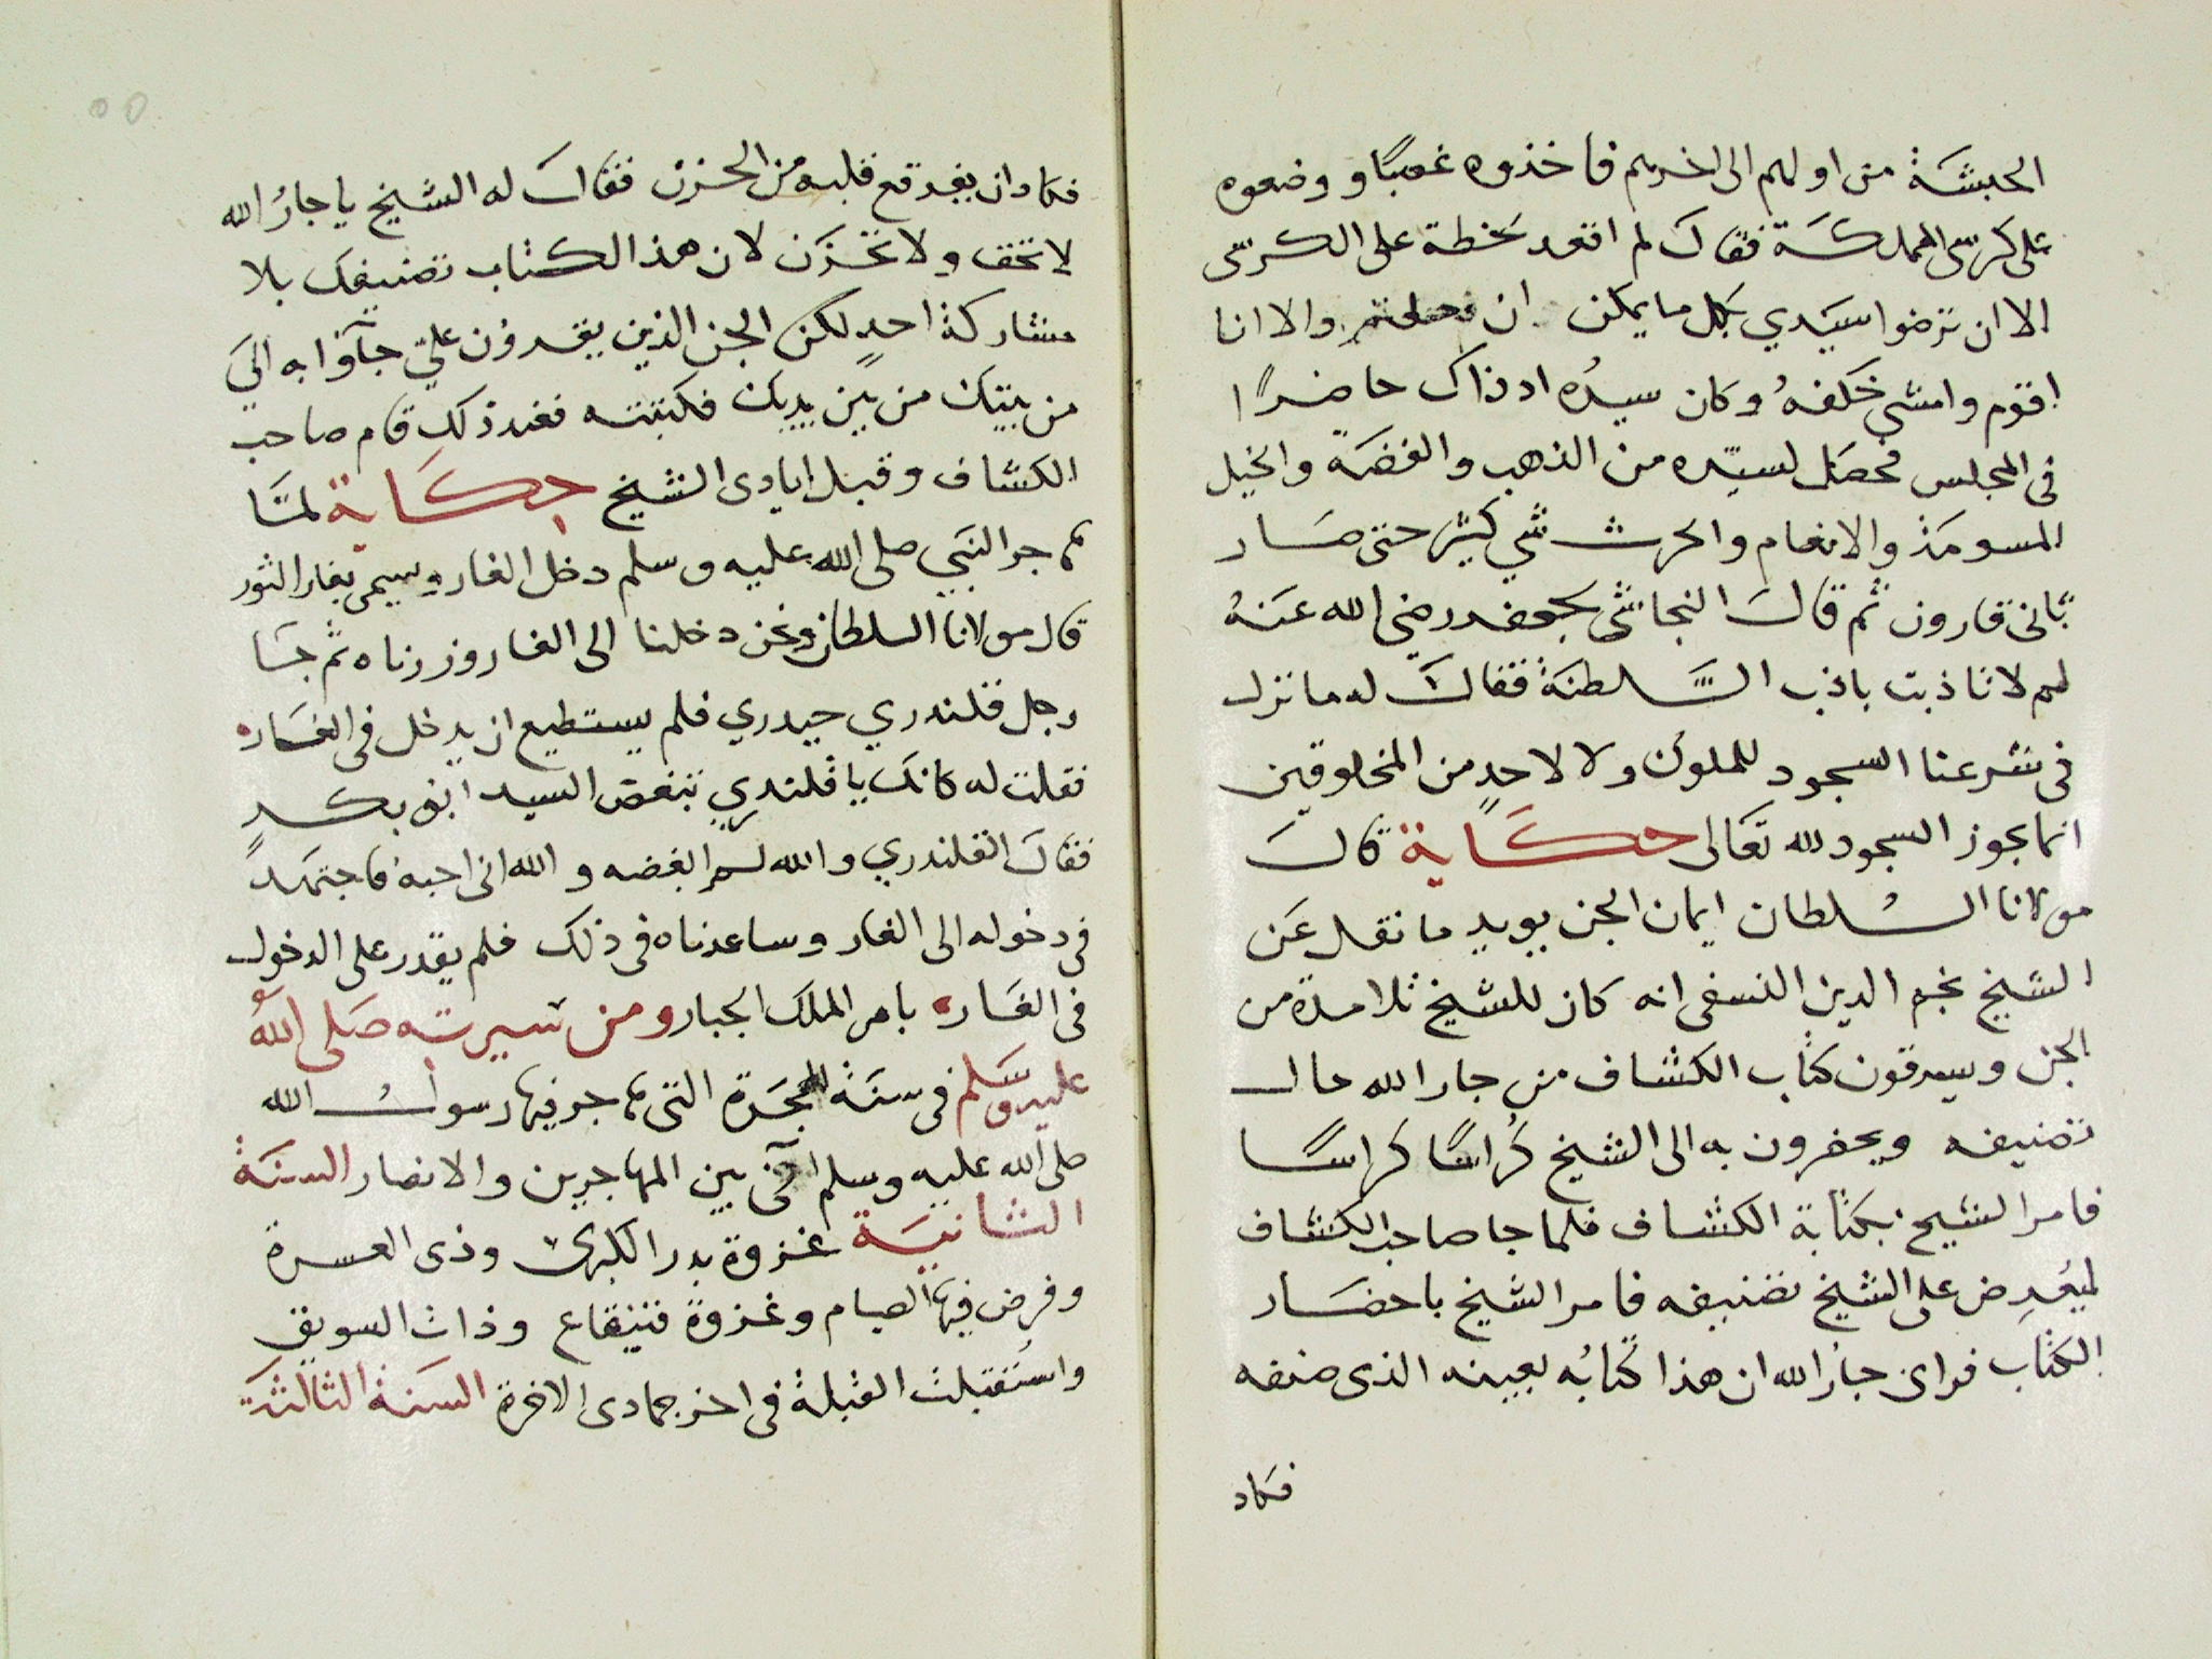 الحبشة من اولهم الى اخرهم فاخذوه غصبًا و وضعوه
على كرسى المملكة فقال لم اقعد لحظة على الكرسى
الا ان ترضوا سيدي بكل ما يمكن ان والا انا
اقوم وامشى خلفهُ وكان سيدُه اذ ذاك حاضرًا
فى المجلس فحصل لسيّده من الذهب والفضة والخيل
المسومة والانعام والحرث شي كثير حتى صار
ثانى قارون ثم قال النجاشى لجعفر رضى الله عنهُ
لم لا تاذبت باذب السَّلطنة فقال له ما نزل
فى شرعنا السجود للملوك ولا لاحدٍ من المخلوقين
انما يجوز السجود لله تعالى حكاية قال
مولانا السُلطان ايمان الجن يويد ما نقل عن
الشيخ نجم الدين النسفى انه كان للشيخ تلامدة من
الجن ويسرقون كتاب الكشاف من جار الله حال
تصنيفه ويحضرون به الى الشيخ كُراسًا كراسًا
فامر الشيخ بكتابة الكشاف فلما جا صاحب الكشاف
ليعُرِض على الشيخ تصنيفه فامر الشيخ باحضار
الكتاب فراى جارُ الله ان هذا كتابُه بعينه الذى صنفه
فكاد
فكاد ان يفرقع قلبه من الحزن فقال له الشيخ يا جارُ الله
لا تخف ولا تحزن لان هذا الكتاب تصنيفك بلا
مشاركة احدٍ لكن الجن الذين يقرؤن عليّ جآؤا به اليَ
من بيتك من بين يديك فكتبته فعند ذلك قام صاحب
الكشاف وقبل ايادى الشيخ حكاية لمّا
هاجر النبي صلى الله عليه وسلم دخل الغار ويسمى بغار الثور
قال مولانا السلطان ونحن دخلنا الى الغار وزرناه ثم جا
رجل قلندري حيدري فلم يستطيع ان يدخل فى الغاره
فقلت له كانك يا قلندري تبغض السيد ابو بكر
فقال القلندري والله لم ابغضه و الله انى احبه فاجتهد
فى دخوله الى الغار وساعدناه فى ذلك فلم يقدر على الدخول
فى الغاره بامر الملك الجبار ومن سيرته صلى الله
عليه وسلم فى سنة الهجرة التى هاجر فيها رسول الله
صلى الله عليه وسلم آخى بين المهاجرين والانصار السنة
الثانية غزوة بدر الكبرى وذى العسرة
وفرض فيها الصيام وغزوة قينقاع وذات السويق
واستُقبلت القبلة فى اخر جمادى الاخرة السنة الثالثة